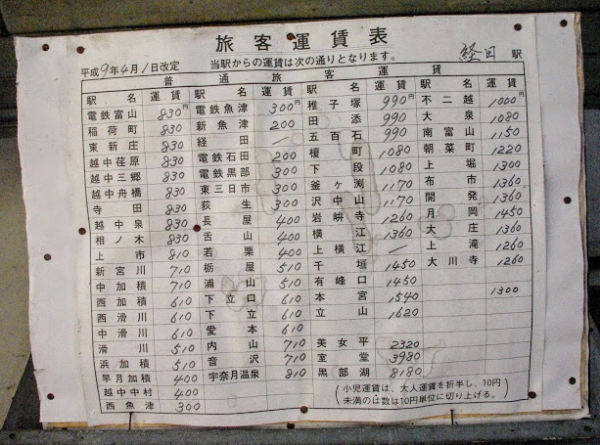 旅客運賃表
平成9年4月1日改定 当駅からの運賃は次の通りとなります。 経田 駅
普通旅客運賃
駅名 運賃 駅名 運賃 駅名 運賃 駅名 運賃
電鉄富山 830円 電鉄魚津 300円 稚子塚 990円 不二越 1000円
稲荷町 830 新魚津 200 田添 990 大泉 1080
東新庄 830 経田 — 五百石 990 南富山 1150
越中荏原 830 電鉄石田 200 榎町 1080 朝菜町 1220
越中三郷 830 電鉄黒部 300 下段 1080 上堀 1300
越中舟橋 830 東三日市 300 釜ヶ渕 1170 布市 1360
寺田 830 荻生 300 沢中山 1170 開発 1360
越中泉 830 長屋 400 岩峅寺 1260 月岡 1450
相ノ木 830 舌山 400 横江 1360 大庄 1360
上市 810 若栗 400 上横江 — 上滝 1260
新宮川 710 栃屋 510 千垣 1450 大川寺 1260
中加積 710 浦山 510 有峰口 1450
西加積 610 下立口 610 本宮 1540 1300
西滑川 610 下立 610 立山 1620
中滑川 610 愛本 610
滑川 510 内山 710 美女平 2320
浜加積 510 音沢 710 室堂 3980
早月加積 400 宇奈月温泉 810 黒部湖 8180
越中中村 400
西魚津 300
(小児運賃は、大人運賃を折半し、10円
未満のは数は10円単位に切り上げる。)